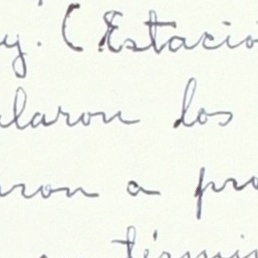 y. (Estació
laron dos
aron a pro
términ